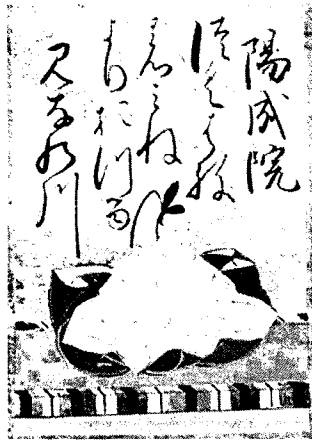 陽成院
つくはね
のみね
よりおつる
みなの川